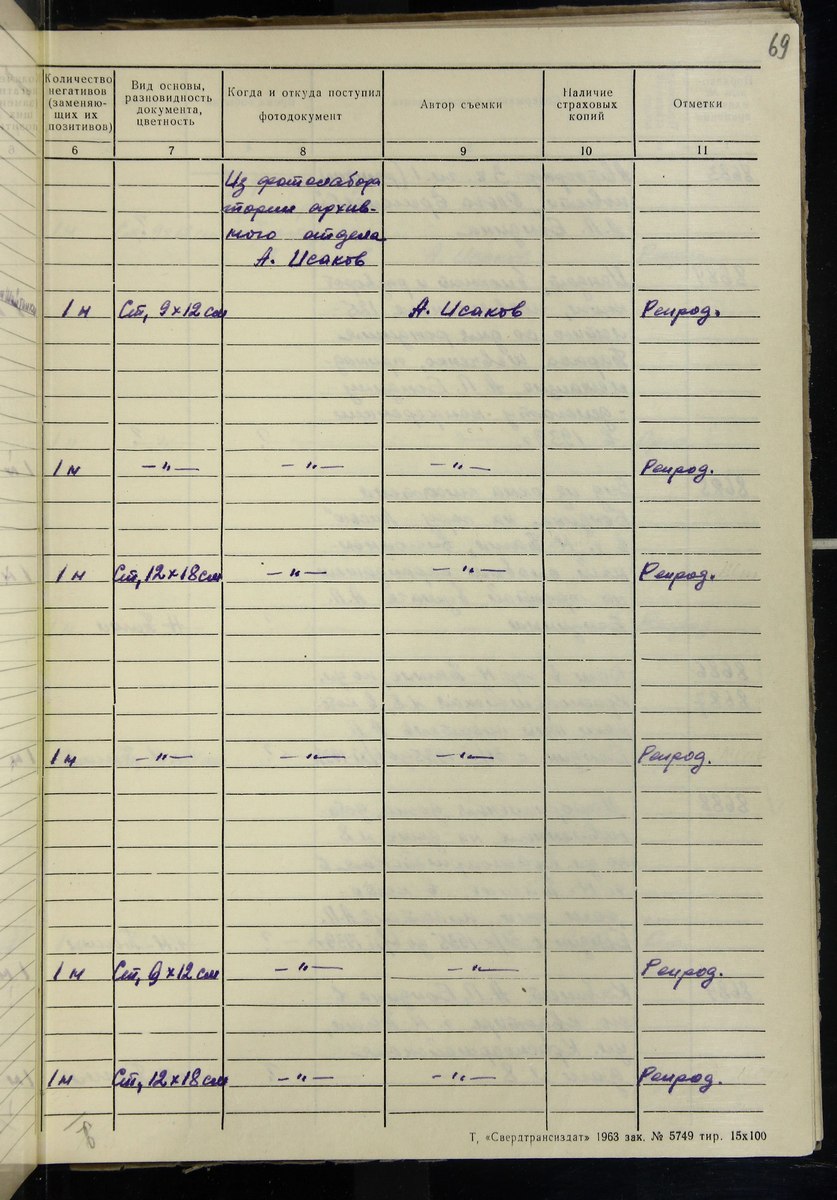 69
Количество
негативов
(заменяю-
щих их
позитивов)
Вид основы,
разновидность
документа,
цветность
Когда и откуда поступил
фотодокумент
Автор съемки
Наличие
страховых
копий
Отметки
6 7 8 9 10 11
Из фотолабора
тории архив-
ного отдела
А. Исаков
1 н Ст, 9×12 см А. Исаков Репрод.
1 н —"— —"— —"— Репрод.
1 н Ст, 12×18 см —"— —"— Репрод.
1 н —"— —"— —"— Репрод.
1 н Ст, 9×12 см —"— —"— Репрод.
1 н Ст, 12×18 см —"— —"— Репрод.
Т, «Свердтрансиздат» 1963 зак. № 5749 тир. 15х100